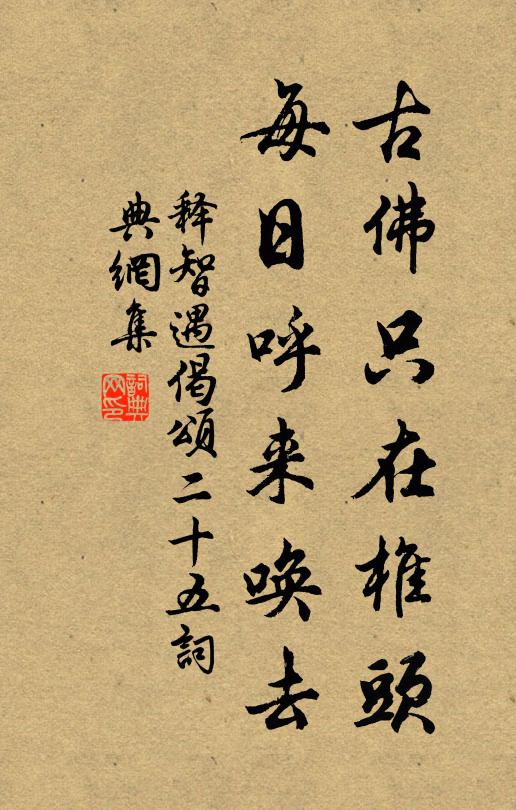 古佛只在椎頭
每日呼来喚去
释智遇偈頌二十五詞
典網集
詞典网印